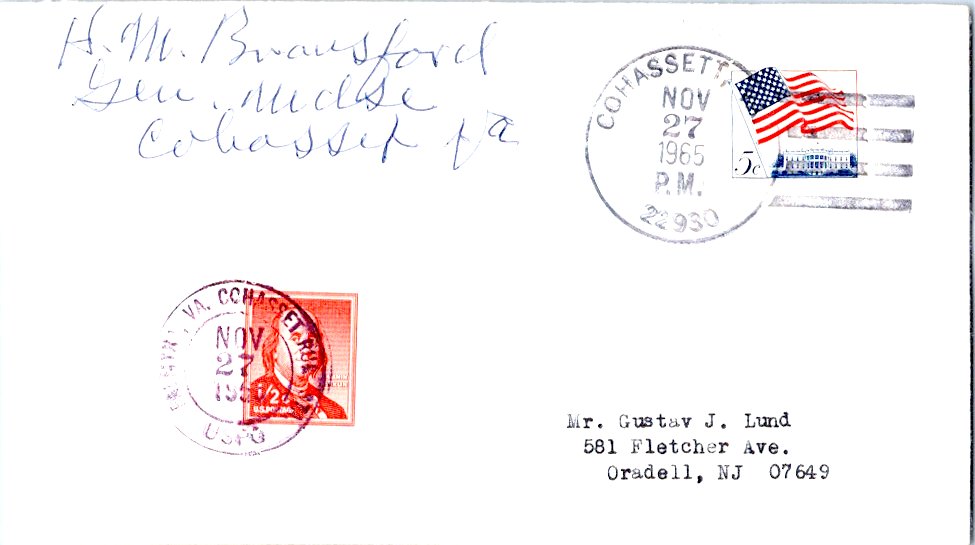 H. M. Bransford
Gen. Mdse
Cohasset Va
COHASSETT,
NOV
27
1965
P.M.
22930
5c
VA. COHASSET RUR.
NOV
27
USPO
1/2c
U.S. POSTAGE
Mr. Gustav J. Lund
581 Fletcher Ave.
Oradell, NJ 07649